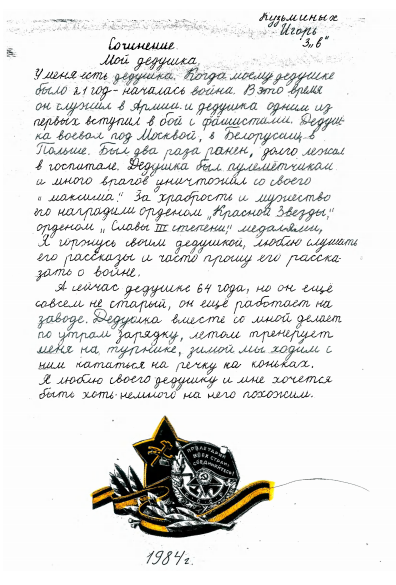 Кузьминых
Игорь
3 „в"
Сочинение
Мой дедушка.
У меня есть дедушка. Когда моему дедушке
было 21 год - началась война. В это время
он служил в Армии и дедушка одним из
первых вступил в бой с фашистами. Дедуш-
ка воевал под Москвой, в Белоруссии, в
Польше. Был два раза ранен, долго лежал
в госпитале. Дедушка был пулемётчиком
и много врагов уничтожил со своего
„максима". За храбрость и мужество
его наградили орденом „Красной Звезды",
орденом „Славы III степени", медалями.
Я горжусь своим дедушкой, люблю слушать
его рассказы и часто прошу его расска-
зать о войне.
А сейчас дедушке 64 года, но он ещё
совсем не старый, он ещё работает на
заводе. Дедушка вместе со мной делает
по утрам зарядку, летом тренерует
меня на турнике, зимой мы ходим с
ним кататься на речку на коньках.
Я люблю своего дедушку и мне хочется
быть хоть немного на него похожим.
ПРОЛЕТАРИИ
ВСЕХ СТРАН
СОЕДИНЯЙТЕСЬ!
1984 г.